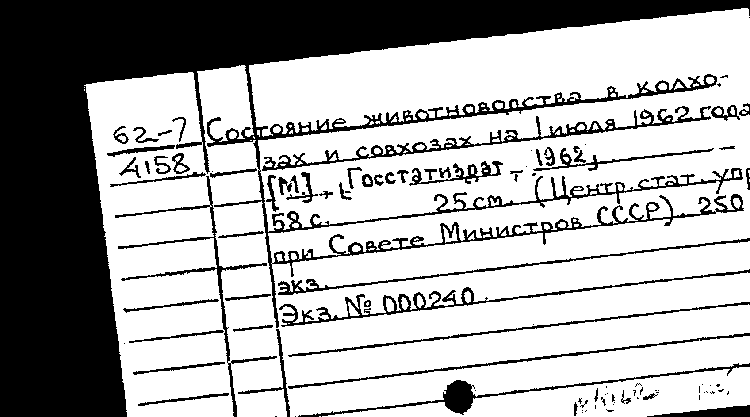 62-7 Состояние животноводства в колхо-
4158. зах и совхозах на 1 июля 1962 года
[М], [Госстатиздат, 1962,
58 с. 25 см. (Центр. стат. упр
при Совете Министров СССР). 250
экз.
Экз. № 000240.